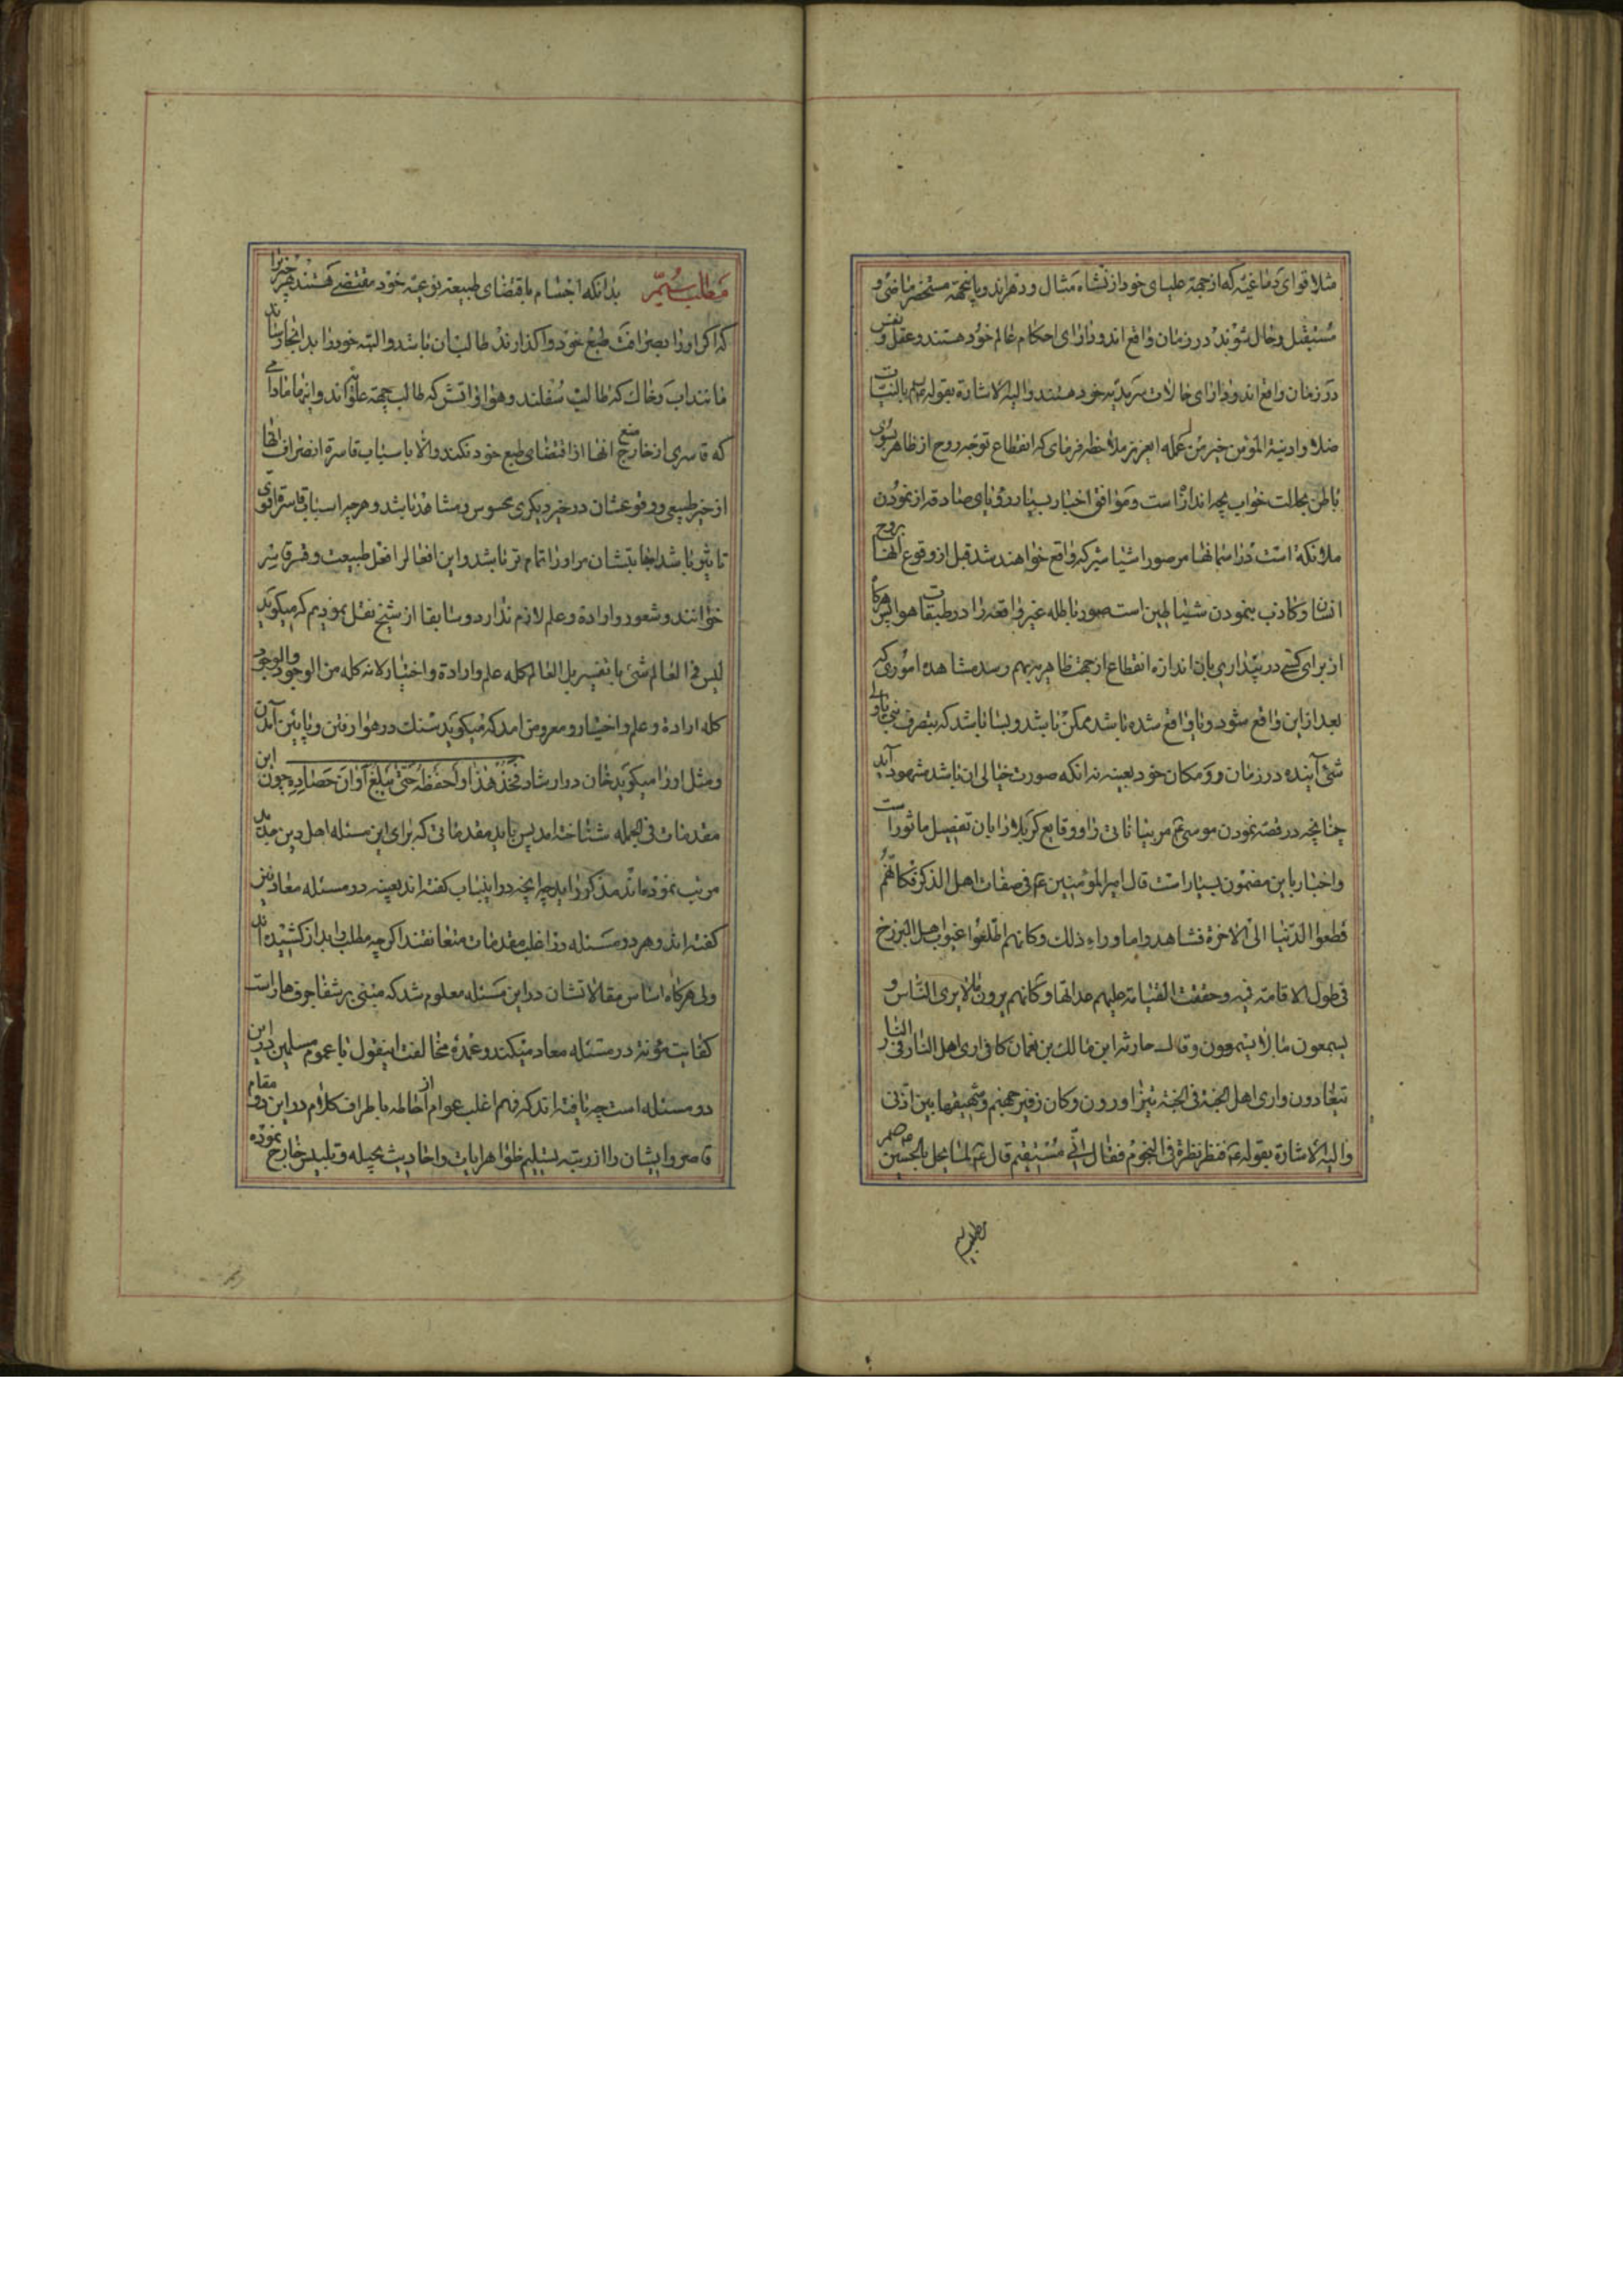 مثلا قوای دماغیه که از جهة علیای خود از نشاه مثال و دهراند و باینجهة مستحضر ماضی و
مستقبل و حال شوند در زمان واقع اند و دارای احکام عالم خود هستند و عقل و نفس
در زمان واقع اند و دارای حالات سرمدیه خود هستند و الیه الاشارة بقوله بالنیات
ونیة المؤمن خیر من عمله ایعزیز ملاحظه فرمای که انقطاع توجه روح از ظاهر بسوی
باطن بحالت خواب بچه اندازه است و موافق اخبار بسیار رؤیای صادقه از نمودن
ملائکه است در اسمانها مر صور اشیائیرا که واقع خواهند شد قبل از وقوع انها بروح
انسان و کاذب بنمودن شیاطین است صور باطله غیر واقعه را در طبقات هوا پس هرگاه
از برای کسی در بیداری بان اندازه انقطاع از جهت ظاهر بهم رسد مشاهده اموری که
بعد ازاین واقع شود و یا واقع شده باشد ممکن باشد و بسا باشد که بتصرف نبی یا ولی
شئ آینده در زمان و مکان خود بعینه نه انکه صورت خیالی ان باشد مشهود آید
چنانچه در قصه نمودن موسی مر بیننا ثانی را و وقایع کربلا را بان تفصیل ماثور است
و اخبار باین مضمون بسیار است قال امیرالمؤمنین ع فی صفات اهل الذکر فکانهم
قطعوا الدنیا الی الاخرة فشاهدوا ما وراء ذلک و کانهم اطلعوا غیوب اهل البرزخ
فی طول الاقامة فیه و حققت القیامة علیهم عداتها و کانهم یرون ما لا یری الناس و
یسمعون ما لا یسمعون و قال حارثه ابن مالک بن نعمان کانی اری اهل النار فی النار
یتعاوون و اری اهل الجنة فی الجنة یتزاورون و کان زفیر جهنم و شهیقها بین اذنی
و الیه الاشارة بقوله ع فنظر نظرة فی النجوم فقال انی سقیم قال ع لما یحل بالحسین
مطلب سیم بدانکه اجسام باقتضای طبیعة نوعیه خود مقتضی هستند چیزیرا
که اگر او را بصرافت طبع خود واگذارند طالب ان باشد و البته خود را بدانجا رساند
مانند اب و خاک که طالب سفلند و هوا و اتش که طالب جهة علواند و اینها مادامی
که قاسری از خارج منع انها از اقتضای طبع خود نکند والا باسباب قاسره انصراف انها
از حیز طبیعی و وقوعشان در حیز دیگری محسوس و مشاهد باشد و هرچه اسباب قاسره قوی
تاثیر باشد اجابتشان مر او را اتمام تر باشد و این افعال را فعل طبیعت و قسر قاسر
خوانند و شعور و اراده و علم لازم ندارد و سابقا از شیخ نقل نمودیم که میگوید
لیس فی العالم شئ بالقسر بل العالم کله علم و ارادة و اختیار لانه کله من الوجود و الوجود
کله ارادة و علم و اختیار و معروض امد که میگوید سنگ در هوا رفتن و پایین آمدن
و مثل او را میگوید خان در ارشاد فخذ هذا و احفظه حتی تبلغ آوان حصاده چون این
مقدمات فی الجمله شناخته امد پس باید مقدماتی که برای این مسئله اهل دین
مرتب نموده‌اند مذکور اید چه انچه در اینباب گفته اند بعینه در مسئله معاد نیز
گفته اند و هر دو مسئله در اغلب مقدمات متعانقند اگرچه مطلب را بدراز کشیده اند
ولی هرگاه اساس مقالاتشان دراین مسئله معلوم شد که مبتنی بر شفا جرف هار است
کفایت مؤنه در مسئله معاد میکند و عمده مخالفت اینقول با عموم مسلمین در این
دو مسئله است چه یافته اند که فهم اغلب عوام از احاطه باطراف کلام در این دو مقام
قاصر و ایشان را از رتبه تسلیم ظواهر ایات و احادیث بحیله و تلبیس خارج نموده